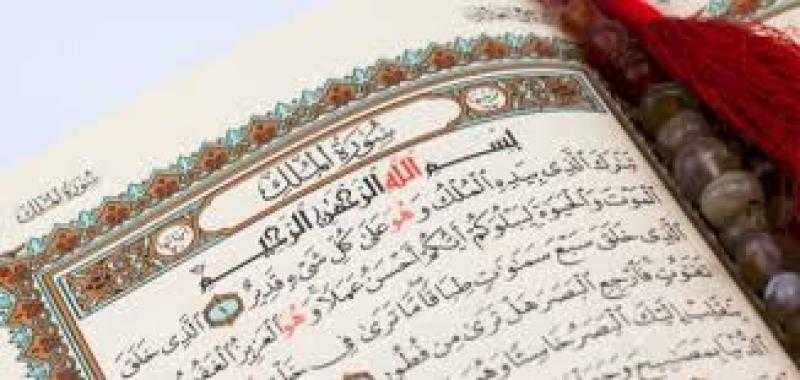 سُورَةُ المُلْكِ
سُورَةُ المُلْكِ
بِسْمِ اللهِ الرَّحْمٰنِ الرَّحِيمِ
تَبَارَكَ الَّذِي بِيَدِهِ الْمُلْكُ وَهُوَ عَلَىٰ كُلِّ شَيْءٍ قَدِيرٌ ١ الَّذِي خَلَقَ
الْمَوْتَ وَالْحَيَوٰةَ لِيَبْلُوَكُمْ أَيُّكُمْ أَحْسَنُ عَمَلًا وَهُوَ الْعَزِيزُ
الَّذِي خَلَقَ سَبْعَ سَمَوَاتٍ طِبَاقًا مَا تَرَىٰ فِي
تَفَٰوُتٍ فَارْجِعِ الْبَصَرَ هَلْ تَرَىٰ مِنْ فُطُورٍ
يَنْقَلِبْ إِلَيْكَ الْبَصَرُ خَاسِئًا وَهُوَ
الدُّنْيَا بِمَصَٰبِيحَ